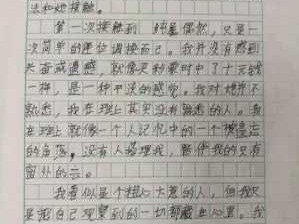 法和她接触。
第一次接触到 纯是偶然，只是一
次简单的座位调换而已。我并没有感到
失望或遗憾，就像买彩票时中了十元钱
一样，是一种平淡的感觉。我对她并不
熟悉，我在班上其实没有熟悉的人。我
在班上就像一个人记忆中的一个被遗忘
的角落，没有人搭理我，陪伴我的只有
窗外的云。
我看似是个粗心大意的人，但我只
是把自己观察到的一切都藏在心里。我